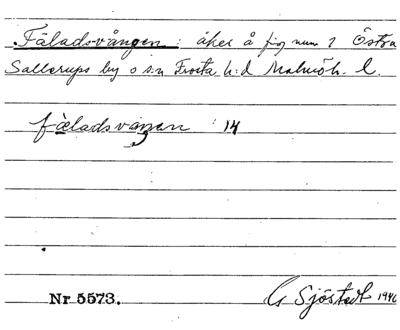 Fäladsvången: åker å fig num 1 Östra
Sallerups by o s:n Frosta h:d Malmöh. L.
fäladsvaŋen 14
Nr 5573. G Sjöstedt 1946